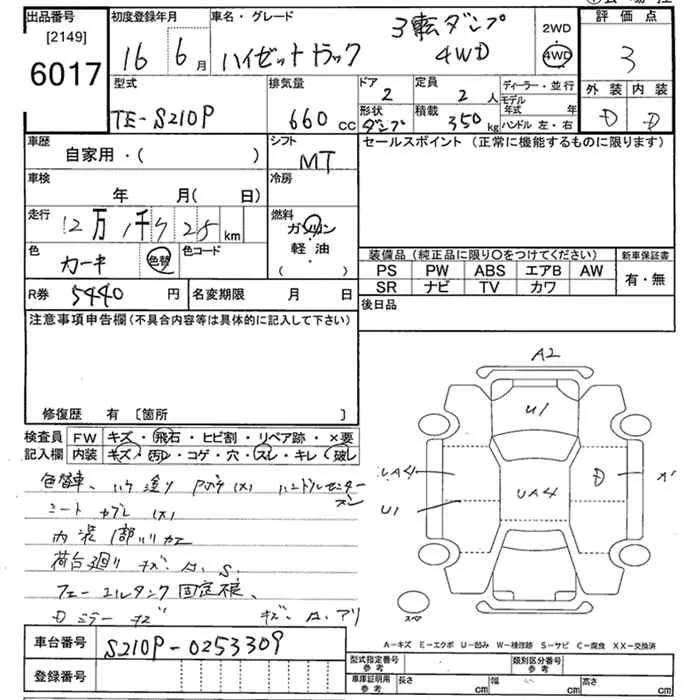 出品番号
[2149]
6017
初度登録年月
16 6月
車名・グレード
ハイゼットトラック
3転ダンプ
4WD
2WD
4WD
評価点
3
型式
TE-S210P
排気量
660 cc
ドア
2
定員
2 人
形状
ダンプ
積載
350 kg
ディーラー・並行
モデル年式 年
ハンドル 左・右
外装 内装
D D
車歴
自家用・( )
シフト
MT
車検
年 月( 日)
冷房
走行
12万1千 km
燃料
ガソリン
軽油
( )
色
カーキ
色替
色コード
R券 5440 円
名変期限 月 日
セールスポイント (正常に機能するものに限ります)
装備品 (純正品に限り○をつけてください)
新車保証書
PS PW ABS エアB AW
有・無
SR ナビ TV カワ
後日品
注意事項申告欄(不具合内容等は具体的に記入して下さい)
修復歴 有 〔箇所 〕
検査員 FW キズ・飛石・ヒビ割・リペア跡・×要
記入欄 内装 キズ・汚レ・コゲ・穴・スレ・キレ・破レ
色替車、ハケ塗り
シートカブレ
内装1部
荷台廻り
フューエルタンク固定不良、
Dミラーキズ
A2
U1
UA4
UA4
U1
D
スペア
A-キズ E-エクボ U-凹み W-補修跡 S-サビ C-腐食 XX-交換済
車台番号 S210P-0253309
登録番号
型式指定番号
参考
類別区分番号
参考
車庫証明用
参考
長さ cm 幅 cm 高さ cm